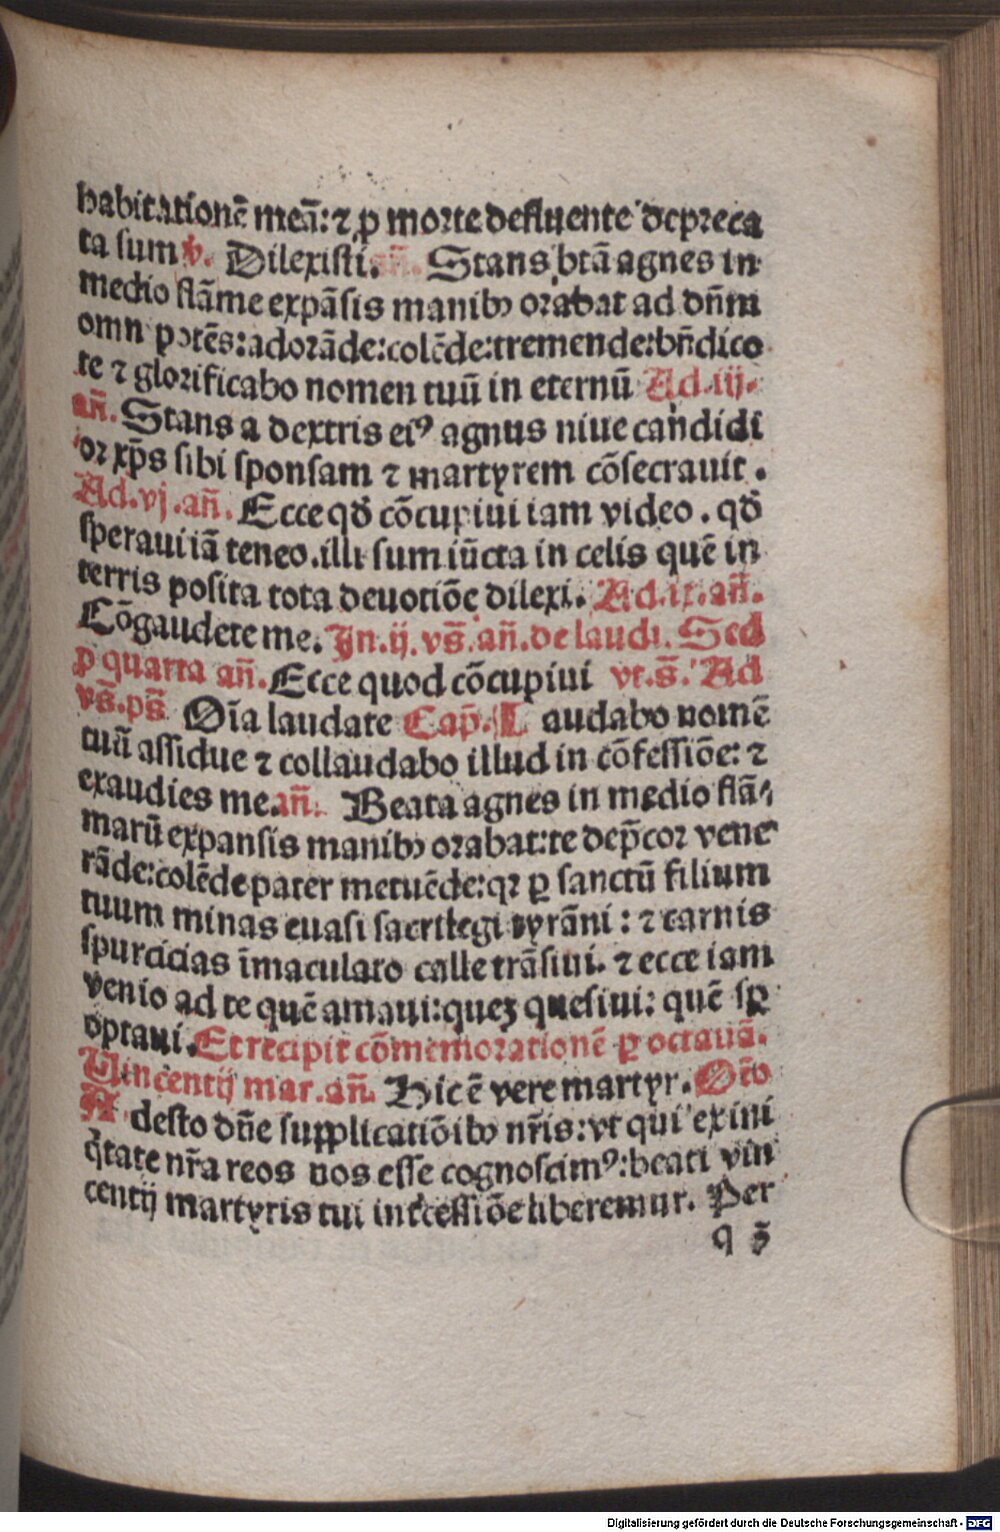 habitationē meā: ⁊ ꝑ morte defluente depreca
ta sum ℣. Dilexisti. añ. Stans btā agnes in
medio flāme expāsis manibꝫ orabat ad dñm
omn potēs: adorāde: colēde: tremende: bñdico
te ⁊ glorificabo nomen tuū in eternū Ad .iij.
añ. Stans a dextris eiꝰ agnus niue candidi
or xp̄s sibi sponsam ⁊ martyrem cōsecrauit.
Ad .vj. añ. Ecce qd̄ cōcupiui iam video. qd̄
speraui iā teneo. illi sum iūcta in celis quē in
terris posita tota deuotiōe dilexi. Ad .ix. añ.
Cōgaudete me. Jn .ij. vs̄. añ. de laudi. Sed
ꝑ quarta añ. Ecce quod cōcupiui vt .s̄. Ad
vs̄. ps̄ Oīa laudate Cap̄. L audabo nomē
tuū assidue ⁊ collaudabo illud in cōfessiōe: ⁊
exaudies me. añ. Beata agnes in medio flā⸗
marū expansis manibꝫ orabat: te dep̄cor vene
rāde: colēde pater metuēde: qꝛ ꝑ sanctū filium
tuum minas euasi sacrilegi tyrāni: ⁊ carnis
spurcicias īmaculato calle trāsiui. ⁊ ecce iam
venio ad te quē amaui: queꝫ quesiui: quē sꝑ
optaui. Et recipit cōmemorationē ꝑ octauā.
Uincentij mar. añ. Hic ē vere martyr. Or̄o
A desto dñe supplicatiōibꝫ nr̄is: vt qui ex ini
q̄tate nr̄a reos nos esse cognoscimꝰ: beati vin
centij martyris tui int̄cessiōe liberemur. Per
q 5
Digitalisierung gefördert durch die Deutsche Forschungsgemeinschaft - DFG